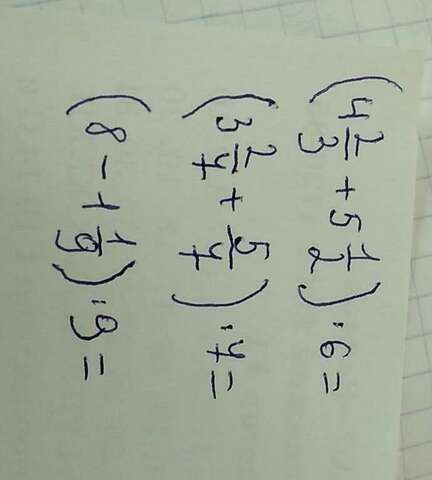 (4 2/3 + 5 1/2) · 6 =
(3 2/7 + 5/7) · 7 =
(8 − 1 1/9) · 9 =